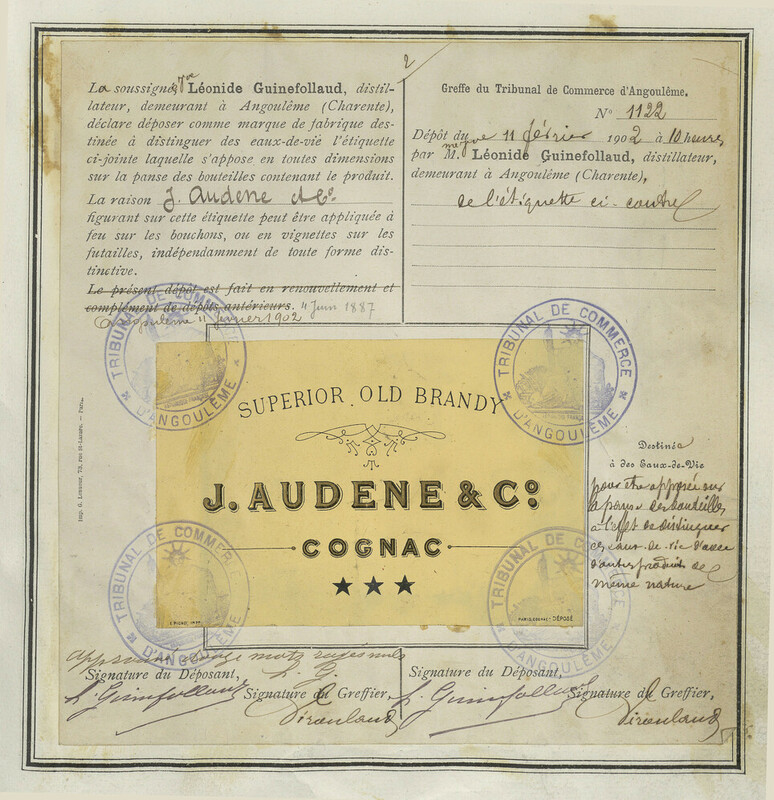 2
La soussignée Vve Léonide Guinefollaud, distil-
lateur, demeurant à Angoulême (Charente),
déclare déposer comme marque de fabrique des-
tinée à distinguer des eaux-de-vie l'étiquette
ci-jointe laquelle s'appose en toutes dimensions
sur la panse des bouteilles contenant le produit.
La raison J. Audene & Co.
figurant sur cette étiquette peut être appliquée à
feu sur les bouchons, ou en vignettes sur les
futailles, indépendamment de toute forme dis-
tinctive.
Le présent dépôt est fait en renouvellement et
complément de dépôts antérieurs. 11 Juin 1887
Angoulême 11 février 1902
Greffe du Tribunal de Commerce d'Angoulême.
N° 1122
Dépôt du 11 février 1902 à 10 heures
par M. Léonide Guinefollaud, distillateur,
demeurant à Angoulême (Charente),
de l'étiquette ci-contre
TRIBUNAL DE COMMERCE
D'ANGOULÊME
TRIBUNAL DE COMMERCE
D'ANGOULÊME
SUPERIOR OLD BRANDY
J. AUDENE & Co.
COGNAC
PARIS, COGNAC, DÉPOSÉ
Destinée
à des Eaux-de-Vie
pour être apposée sur
la panse des bouteilles
à l'effet de distinguer
ces eaux-de-vie d'avec
d'autres produits de
même nature
TRIBUNAL DE COMMERCE
D'ANGOULÊME
TRIBUNAL DE COMMERCE
D'ANGOULÊME
mots rayés nuls
L. G.
Signature du Déposant,
L. Guinefollaud
Signature du Greffier,
Signature du Déposant,
L. Guinefollaud
Signature du Greffier,